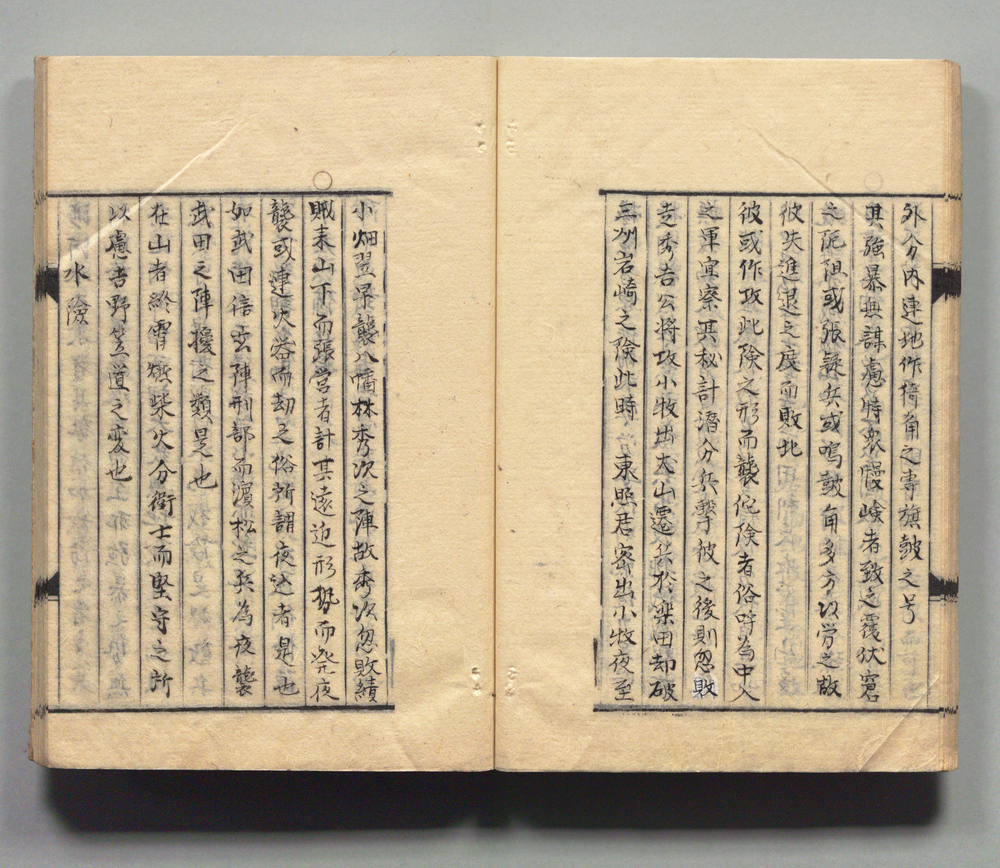 外分内連地作掎角之壽旗皷之号
其強暴與謀慮恃衆慢嶮者致之覆伏窘
之阨阻或張疑兵或鳴皷角多方以労之故
彼失進退之度而敗北
彼或作攻此険之形而襲佗険者俗呼為中入
之渾宜察其秘計潛分兵擊彼之後則忽敗
走秀吉公将攻小牧出犬山遷兵於楽田却破
三州岩崎之険此時 東照君密出小牧夜至
小畑翌早襲八幡林秀次之陣故秀次忽敗績
賊来山下而張営者計其遠近形勢而発夜
襲或連火器而劫之俗所謂夜込者是也
如武田信玄陣刑部而濵松之兵為夜襲
武田之陣擾之類是也
在山者終霄燃柴火分衛士而堅守之所
以慮吉野笠道之変也
水險